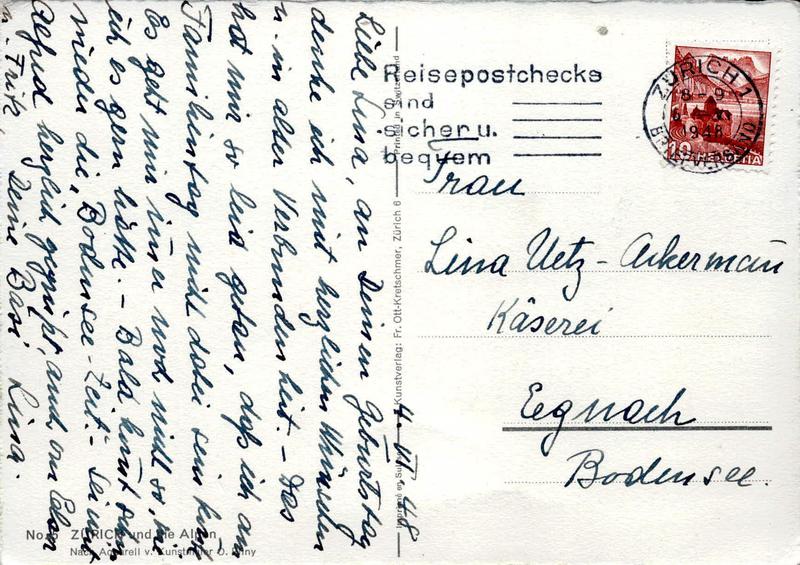 Liebe Lina, an Deinen Geburtstag
denke ich mit herzlichen Wünschen
u. in alter Verbundenheit. – Das
hat mir so leid getan, daß ich am
Familientag nicht dabei sein kon̄te
Es geht mir im̄er noch nicht so, wie
ich es gern hätte. – Bald kom̄t dan̄
wieder die „Bodensee-Zeit". – Sei mit
Alfred herzlich gegrüßt, auch von
u. Fritz, Deine Basi Lina.
4. VI. 48
No. ZÜRICH und die Alpen
Nach Aquarell v. Kunstmaler O.
Kunstverlag: Fr. Ott-Kretschmer, Zürich 6
Printed in Switzerland
Reisepostchecks
sind
sicher u.
bequem
ZÜRICH 1
8–9
1948
10 HELVETIA
Frau
Lina Uetz-Ackerman̄
Käserei
Egnach
Bodensee.